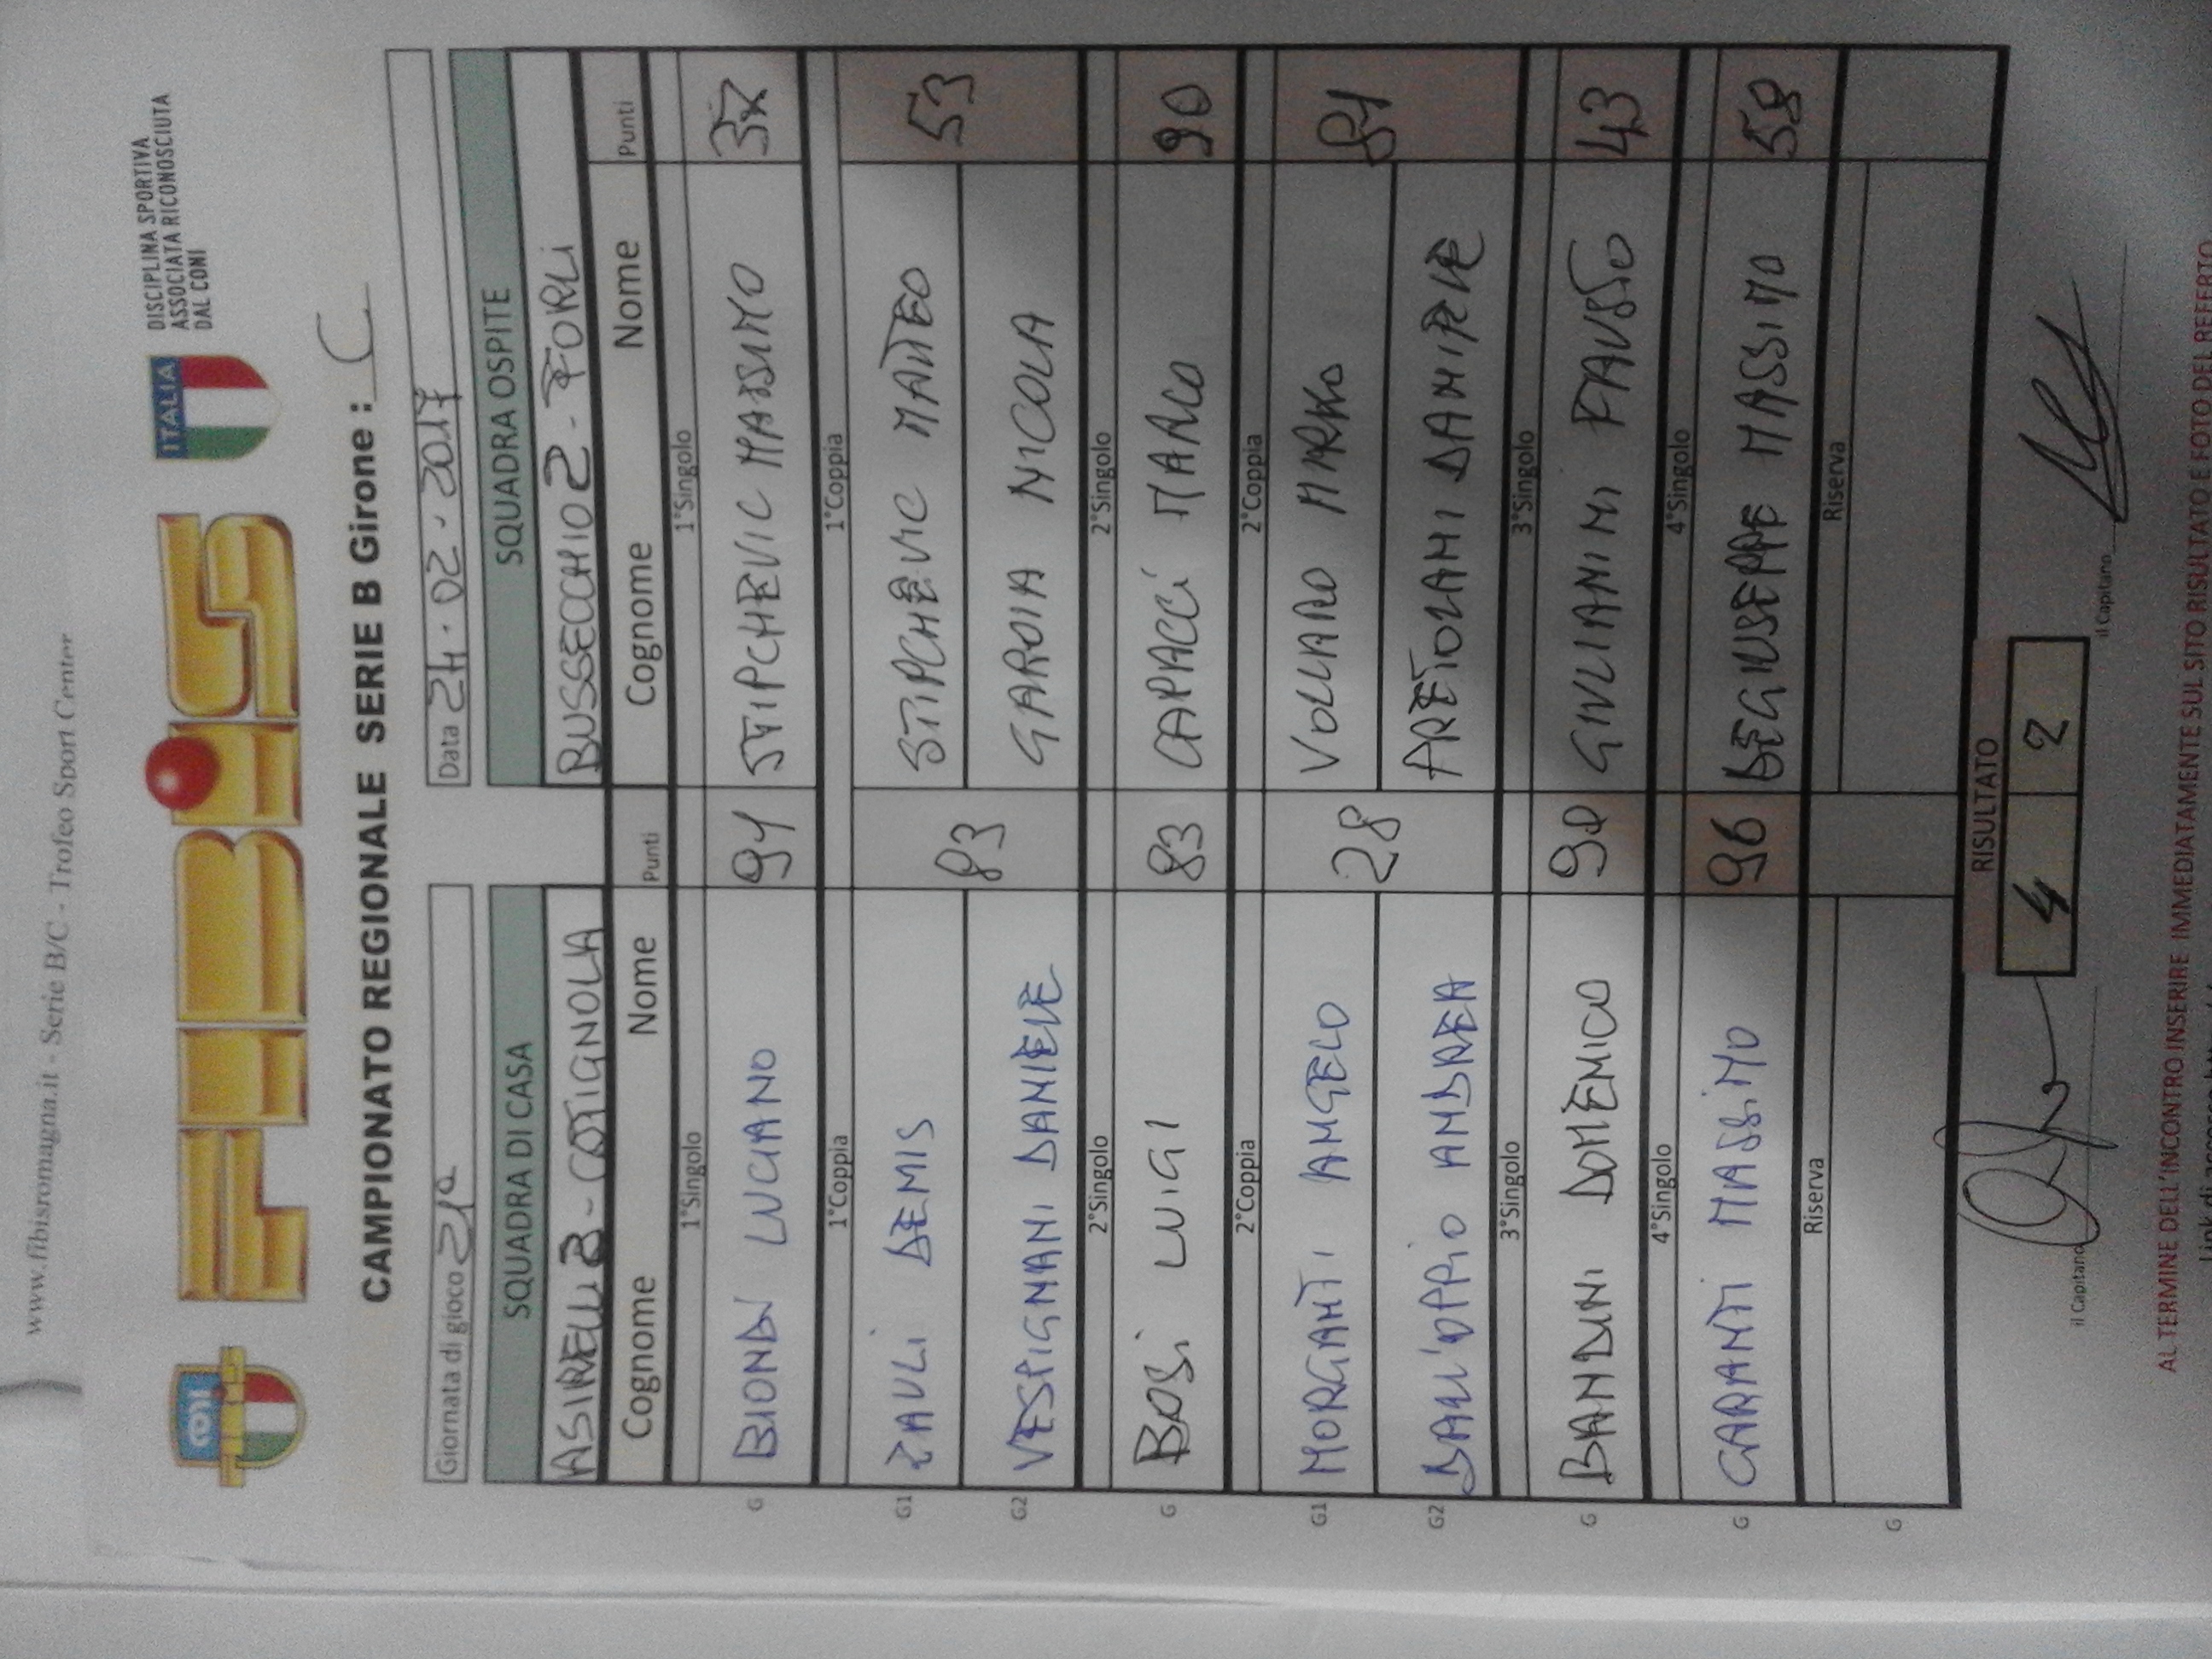 www.fibisromagna.it - Serie B/C - Trofeo Sport Center
CONI FIBiS ITALIA
DISCIPLINA SPORTIVA
ASSOCIATA RICONOSCIUTA
DAL CONI
CAMPIONATO REGIONALE SERIE B Girone : C
Giornata di gioco 21° Data 24.02.2017
SQUADRA DI CASA SQUADRA OSPITE
ASIRELLI 3 - COTIGNOLA BUSSECCHIO 2 - FORLI
Cognome Nome Punti Cognome Nome Punti
1°Singolo 1°Singolo
G BIONDI LUCIANO 91 STIPCHEVIC MASSIMO
1°Coppia 1°Coppia
G1 ZAULI DEMIS 83 STIPCHEVIC MATTEO 53
G2 VESPIGNANI DANIELE GAROIA NICOLA
2°Singolo 2°Singolo
G BOSI LUIGI 83 CAPACCI MARCO 90
2°Coppia 2°Coppia
G1 MORGANTI ANGELO 28 VOLLARO MIRKO 81
G2 DALL'OPPIO ANDREA ARETOLANI DANIELE
3°Singolo 3°Singolo
G BANDINI DOMENICO 90 GIULIANINI FAUSTO 43
4°Singolo 4°Singolo
G GARANTI MASSIMO 96 DEGIUSEPPE MASSIMO 58
Riserva Riserva
G
RISULTATO
il Capitano 4 2 il Capitano
AL TERMINE DELL'INCONTRO INSERIRE IMMEDIATAMENTE SUL SITO RISULTATO E FOTO DEL REFERTO